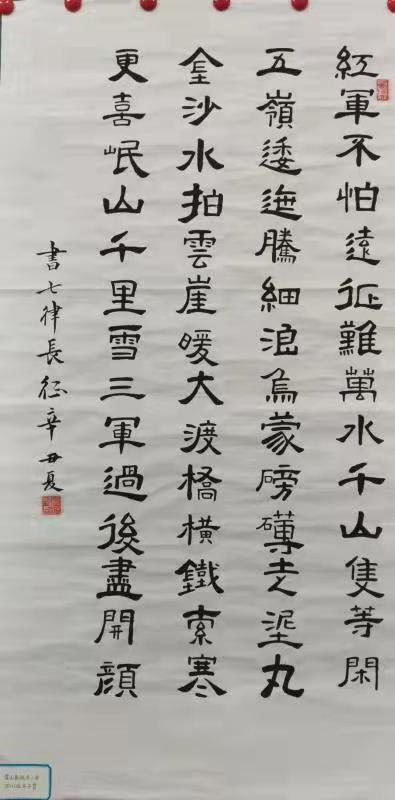 紅軍不怕遠征難萬水千山隻等閑
五嶺逶迤騰細浪烏蒙磅礴走埿丸
金沙水拍雲崖暖大渡橋橫鐵索寒
更喜岷山千里雪三軍過後盡開顏
書七律長征辛丑夏